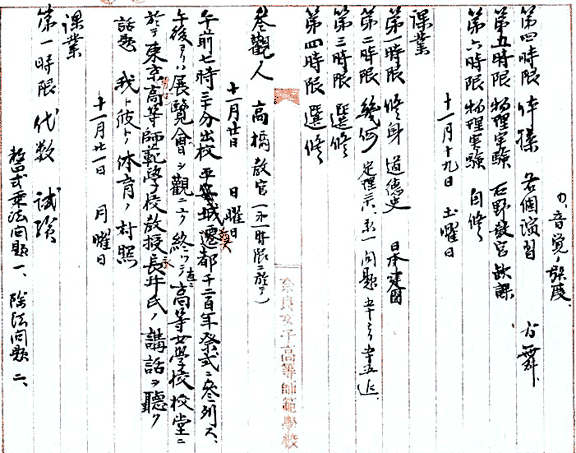 の、音覚ノ強度
第四時限 体操 各個演習 方舞
第五時限 物理実験 石野教官欠課
第六時限 物理実験 自修
十一月十九日 土曜日
課業
第一時限 修身 道徳史 日本建国
第二時限 幾何 定理六、系一 問題
第三時限 選修
第四時限 選修
参観人 高橋教官(一、第一時限ニ於テ)
十一月廿日 日曜日
午前七時三十分出校 平安城遷都千二百年祭式ニ参列ス、
午後ヨリハ展覧會ヲ観ニ 終ツテ 高等女学校校堂ニ
於テ東京高等師範学校教授長井氏ノ講話ヲ聴ク
話題 我ト彼トノ体育ノ対照
十一月廿一日 月曜日
課業
第一時限 代数 試験
乗法問題一、除法問題二、
奈良女子高等師範學校